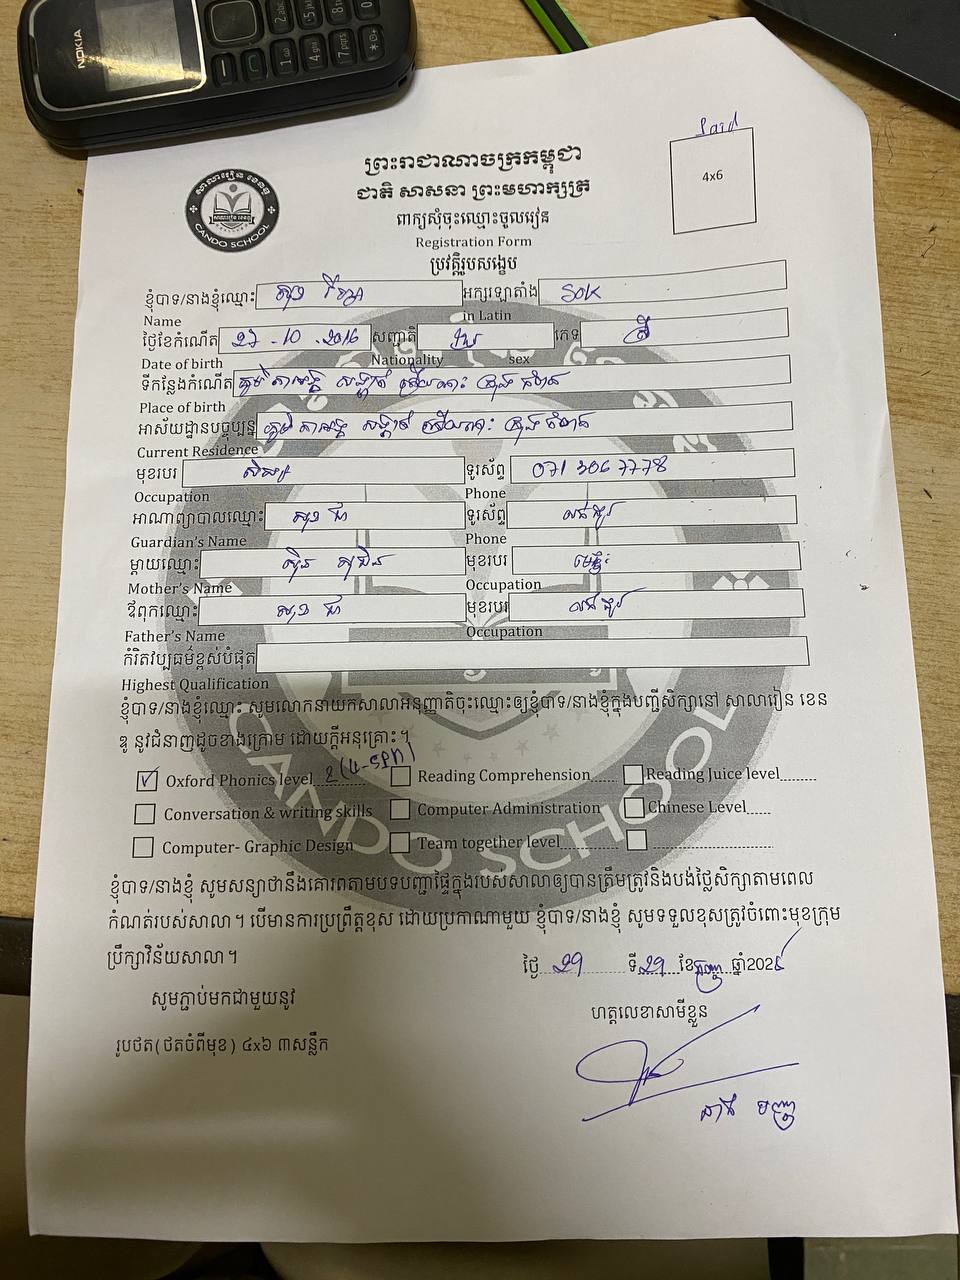 NOKIA
Paid
4x6
សាលារៀន ខេនឌូ
CANDO SCHOOL
ព្រះរាជាណាចក្រកម្ពុជា
ជាតិ សាសនា ព្រះមហាក្សត្រ
ពាក្យសុំចុះឈ្មោះចូលរៀន
Registration Form
ប្រវត្តិរូបសង្ខេប
ខ្ញុំបាទ/នាងខ្ញុំឈ្មោះ សុខ អក្សរឡាតាំង SOK
Name in Latin
ថ្ងៃខែកំណើត 27-10-2016 សញ្ជាតិ ខ្មែរ ភេទ ស្រី
Date of birth Nationality sex
ទីកន្លែងកំណើត ភូមិ សង្កាត់ ក្រុង
Place of birth
អាស័យដ្ឋានបច្ចុប្បន្ន ភូមិ សង្កាត់ ក្រុង
Current Residence
មុខរបរ សិស្ស ទូរស័ព្ទ 071 306 7778
Occupation Phone
អាណាព្យាបាលឈ្មោះ សុខ ជា ទូរស័ព្ទ
Guardian's Name Phone
ម្តាយឈ្មោះ មុខរបរ មេផ្ទះ
Mother's Name Occupation
ឪពុកឈ្មោះ សុខ ជា មុខរបរ
Father's Name Occupation
កំរិតវប្បធម៌ខ្ពស់បំផុត
Highest Qualification
ខ្ញុំបាទ/នាងខ្ញុំឈ្មោះ សូមលោកនាយកសាលាអនុញ្ញាតិចុះឈ្មោះឲ្យខ្ញុំបាទ/នាងខ្ញុំក្នុងបញ្ជីសិក្សានៅ សាលារៀន ខេន
ឌូ នូវជំនាញដូចខាងក្រោម ដោយក្តីអនុគ្រោះ។
Oxford Phonics level 2 (4-5PM) Reading Comprehension...... Reading Juice level........
Conversation & writing skills Computer Administration Chinese Level......
Computer- Graphic Design Team together level............
CANDO SCHOOL
ខ្ញុំបាទ/នាងខ្ញុំ សូមសន្យាថានឹងគោរពតាមបទបញ្ជាផ្ទៃក្នុងរបស់សាលាឲ្យបានត្រឹមត្រូវនិងបង់ថ្លៃសិក្សាតាមពេល
កំណត់របស់សាលា។ បើមានការប្រព្រឹត្តខុស ដោយប្រកាណាមួយ ខ្ញុំបាទ/នាងខ្ញុំ សូមទទួលខុសត្រូវចំពោះមុខក្រុម
ប្រឹក្សាវិន័យសាលា។
ថ្ងៃ 29 ទី 29 ខែ ឆ្នាំ202
សូមភ្ជាប់មកជាមួយនូវ
ហត្ថលេខាសាមីខ្លួន
រូបថត(ថតចំពីមុខ) ៤x៦ ៣សន្លឹក